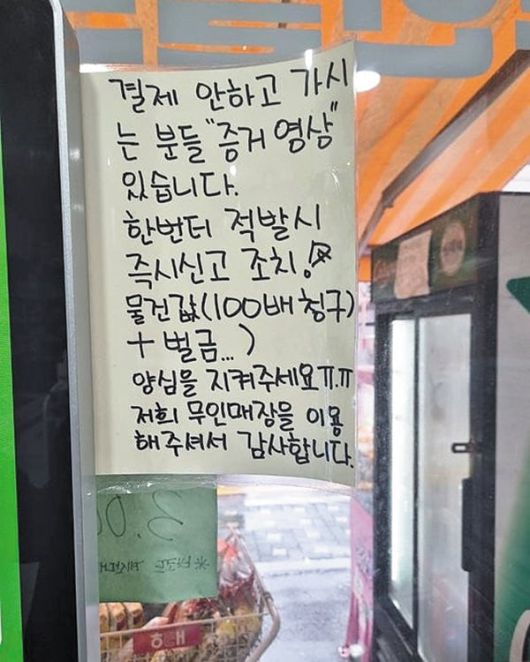 결제 안하고 가시
는 분들 "증거 영상"
있습니다.
한번더 적발시
즉시신고 조치!
물건값(100배 청구)
+ 벌금...)
양심을 지켜주세요ㅠ.ㅠ
저희 무인매장을 이용
해주셔서 감사합니다.
해태